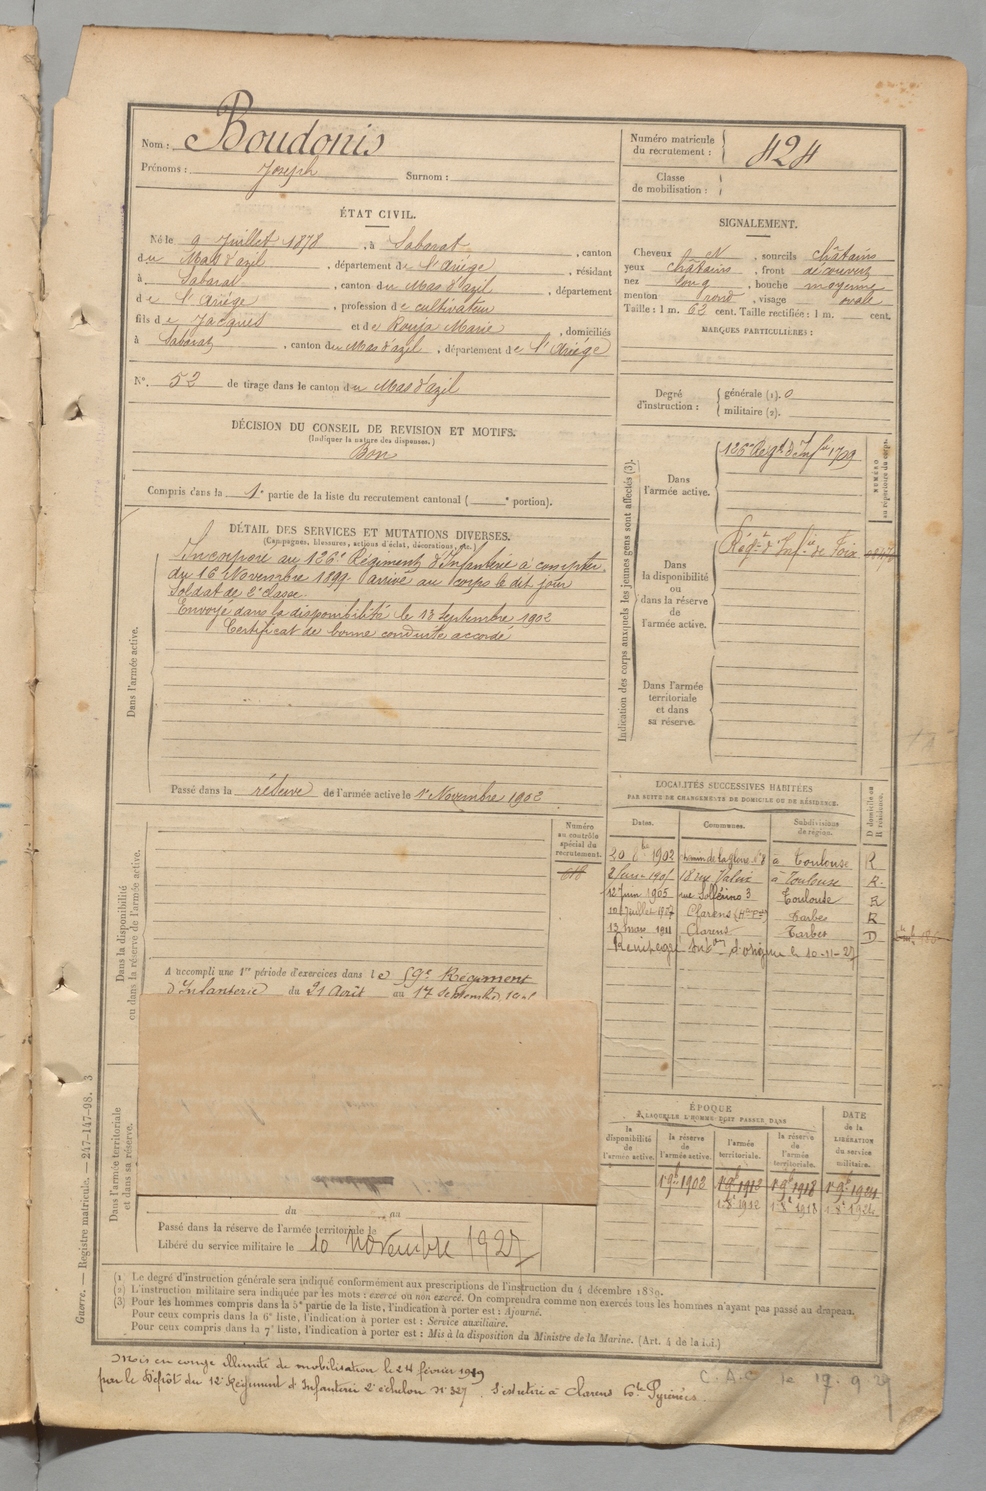 Nom : Boudonis
Prénoms : Joseph Surnom :
Numéro matricule du recrutement : 424
Classe de mobilisation :
ÉTAT CIVIL.
Né le 9 Juillet 1878, à Sabarat, canton
du Mas d'azil, département de l'Ariège, résidant
à Sabarat, canton du Mas d'azil, département
de l'Ariège, profession de cultivateur
fils de Jacques et de Rouja Marie, domiciliés
à Sabarat, canton du Mas d'azil, département de l'Ariége
N°. 52 de tirage dans le canton du Mas d'azil
SIGNALEMENT.
Cheveux et, sourcils châtains
yeux châtains, front découvert
nez long, bouche moyenne
menton rond, visage ovale
Taille : 1 m. 62 cent. Taille rectifiée : 1 m. cent.
MARQUES PARTICULIÈRES :
Degré d'instruction : générale (1). 0
militaire (2).
DÉCISION DU CONSEIL DE REVISION ET MOTIFS.
(Indiquer la nature des dispenses.)
Bon
Compris dans la 1e partie de la liste du recrutement cantonal ( e portion).
DÉTAIL DES SERVICES ET MUTATIONS DIVERSES.
(Campagnes, blessures, actions d'éclat, décorations, etc.)
Dans l'armée active.
Incorporé au 126e Régiment d'Infanterie à compter
du 16 Novembre 1899 arrivé au corps le dit jour
Soldat de 2e classe.
Envoyé dans la disponibilité le 13 Septembre 1902
Certificat de bonne conduite accordé
Passé dans la réserve de l'armée active le 1er Novembre 1902
Indication des corps auxquels les jeunes gens sont affectés (3).
NUMÉRO au répertoire du corps.
Dans l'armée active.
126e Régt d'Infie
Dans la disponibilité ou dans la réserve de l'armée active.
Régt d'Infie de Foix
Dans l'armée territoriale et dans sa réserve.
LOCALITÉS SUCCESSIVES HABITÉES
PAR SUITE DE CHANGEMENTS DE DOMICILE OU DE RÉSIDENCE.
Dates. Communes. Subdivisions de région. D domicile ou R résidence.
20 1902 chemin de la gloire à Toulouse R
18 rue Valux à Toulouse R.
12 Juin 1905 rue Solférino 3 Toulouse R
10 Juillet 1907 Clarens (Htes Pées) Tarbes R
13 mars 1911 Clarens Tarbes D
d'origine le 10-11-27
Dans la disponibilité ou dans la réserve de l'armée active.
Numéro au contrôle spécial du recrutement.
A accompli une 1re période d'exercices dans le 59e Régiment
d'Infanterie du 21 Août au 17 septembre
Dans l'armée territoriale et dans sa réserve.
du au
Passé dans la réserve de l'armée territoriale le
Libéré du service militaire le 10 novembre 1927
ÉPOQUE
À LAQUELLE L'HOMME DOIT PASSER DANS
la disponibilité de l'armée active. la réserve de l'armée active. l'armée territoriale. la réserve de l'armée territoriale. DATE de la LIBÉRATION du service militaire.
1er 9bre 1902 1er 9bre 1912 1er 9bre 1918 1er 9bre 1924
1er 8e 1912 1er 8e 1918 1er 8e 1924
(1) Le degré d'instruction générale sera indiqué conformément aux prescriptions de l'instruction du 4 décembre 1889.
(2) L'instruction militaire sera indiquée par les mots : exercé ou non exercé. On comprendra comme non exercés tous les hommes n'ayant pas passé au drapeau.
(3) Pour les hommes compris dans la 5e partie de la liste, l'indication à porter est : Ajourné.
Pour ceux compris dans la 6e liste, l'indication à porter est : Service auxiliaire.
Pour ceux compris dans la 7e liste, l'indication à porter est : Mis à la disposition du Ministre de la Marine. (Art. 4 de la loi.)
Guerre. — Registre matricule. — 247-147-98. 3
Mis en congé illimité de mobilisation le 24 février 1919
par le Dépôt du 12e Régiment d'Infanterie 2e échelon N° 327. S'est retiré à Clarens Htes Pyrénées.
C.A.C le 17.9.29